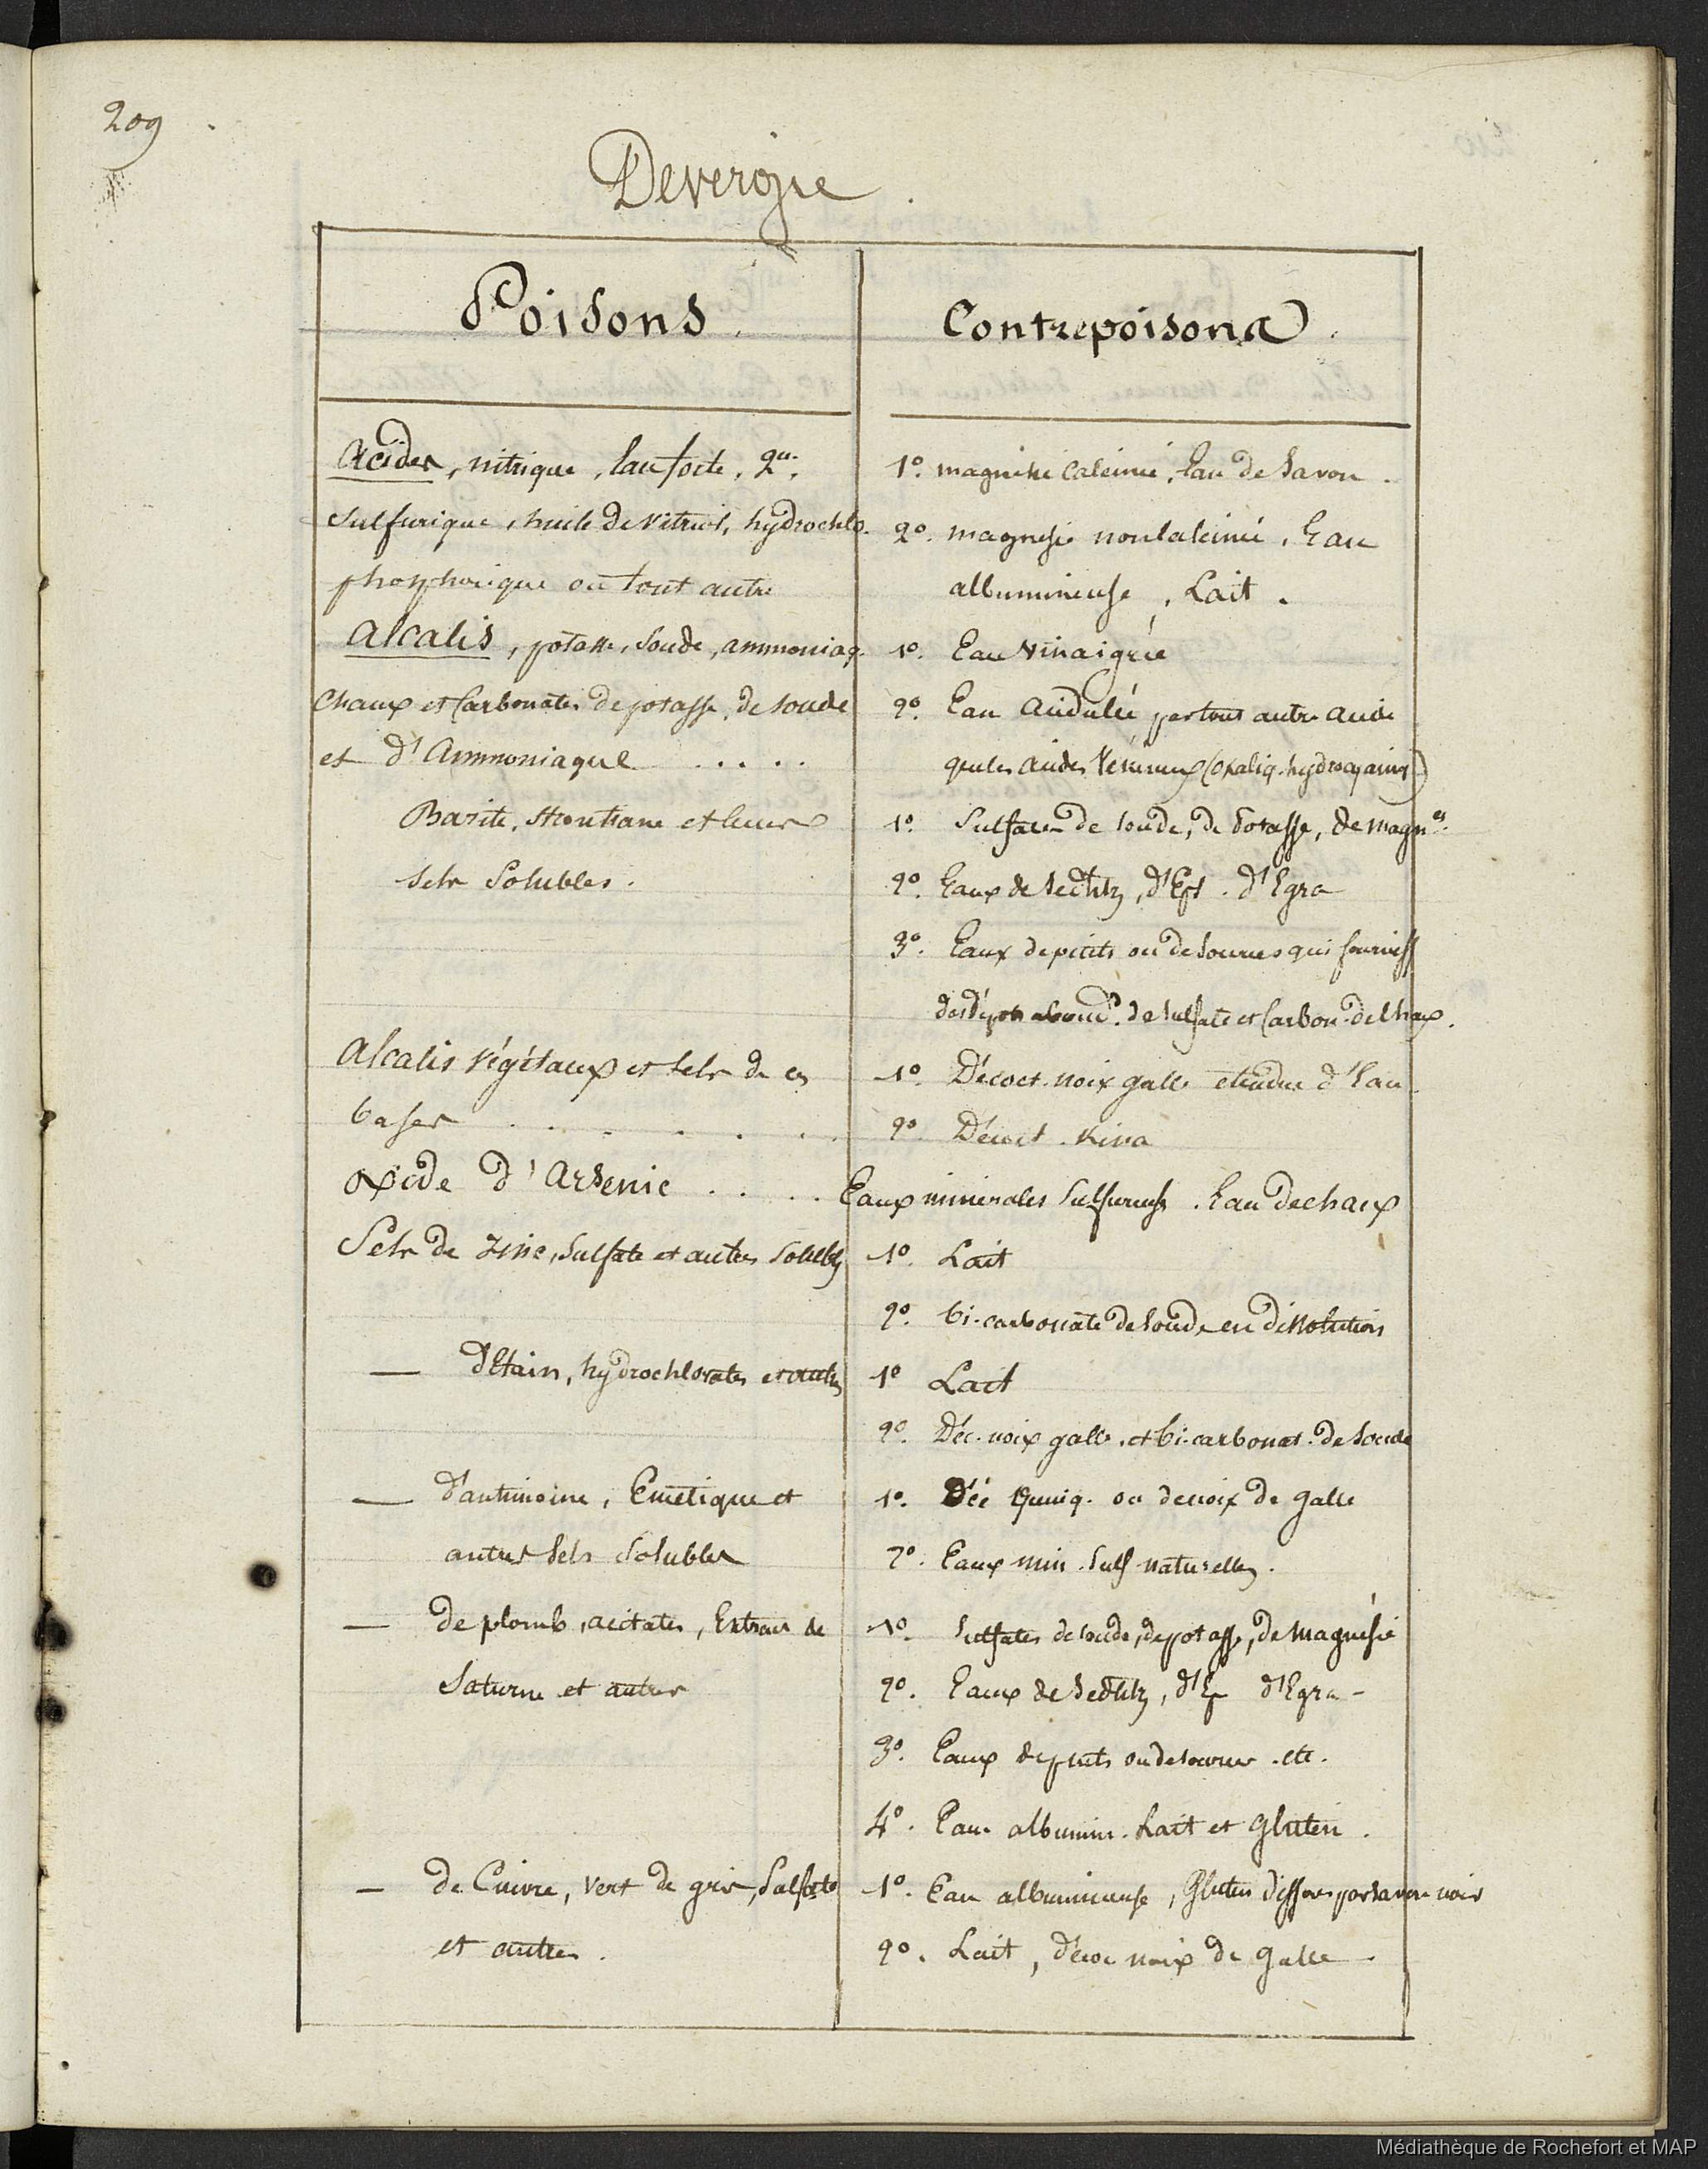 209
Devergie
Poisons.
Contrepoisons.
Acides, nitrique, Eau forte,
sulfurique, huile de vitriol, hydrochlo.
phosphorique ou tout autre
1° magnésie calcinée, Eau de savon.
2° magnésie non calcinée, Eau
albumineuse, Lait.
Alcalis, potasse, soude, ammoniaq.
Chaux et Carbonates de potasse, de soude
et d'Ammoniaque .....
1° Eau vinaigrée
2° Eau acidulée par tout autre acide
que les acides vénéneux (oxaliq. hydrocyaniq)
Barite, strontiane et leurs
sels solubles.
1° Sulfates de soude, de potasse, de magnes.
2° Eaux de sedlitz, d'Eps. d'Egra
3° Eaux de puits ou de sources qui fourniss
des dépots abond. de sulfate et carbon. de chaux.
Alcalis végétaux et sels de ces
bases .......
1° Décoct. noix galle étendue d'Eau
2° Décoct. Kina
Oxide d'Arsenic ....
Eaux minérales sulfureuses. Eau de chaux
Sels de zinc, sulfate et autres solubles
1° Lait
2° bi-carbonate de soude en dissolution
— d'Etain, hydrochlorates et autres
1° Lait
2° Déc. noix galle, et bi-carbonat. de soude
— d'antimoine, Emétique et
autres sels solubles
1° Déc Quinq. ou de noix de galle
2° Eaux min. sulf naturelles.
— de plomb, acétates, Extrait de
Saturne et autres
1° sulfates de soude, de potasse, de magnésie
2° Eaux de sedlitz, d'Ep d'Egra-
3° Eaux de puits ou de sources. etc.
4° Eau albumin. Lait et Gluten.
— de Cuivre, vert de gris, sulfate
et autres.
1° Eau albumineuse, Gluten dissous par savon noir
2° Lait, décoc noix de galle.
Médiathèque de Rochefort et MAP